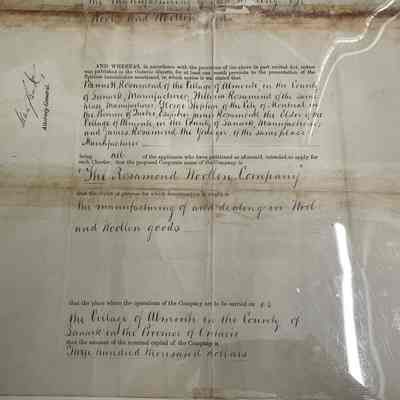 Wool and Woollen
AND WHEREAS, in accordance with the provisions of the above in part recited Act, notice
was published in the Ontario Gazette, for at least one month previous to the presentation of the
Petition herein mentioned, in which notice it was stated that
Bennett Rosamond of the Village of Almonte in the County
of Lanark, Manufacturer, William Rosamond of the same
place, Manufacturer, George Stephen of the City of Montreal in
the Province of Quebec, Esquire, James Rosamond the Elder of the
Village of Almonte, in the County of Lanark, Manufacturer
and James Rosamond the Younger of the same place
Manufacturer
being all of the applicants who have petitioned as aforesaid, intended to apply for
such Charter; that the proposed Corporate name of the Company is
"The Rosamond Woollen Company"
that the object or purpose for which Incorporation is sought is
The manufacturing of and dealing in Wool
and Woollen goods
that the place where the operations of the Company are to be carried on is
The Village of Almonte in the County of
Lanark in the Province of Ontario
that the amount of the nominal capital of the Company is
Three hundred thousand dollars
Attorney General.